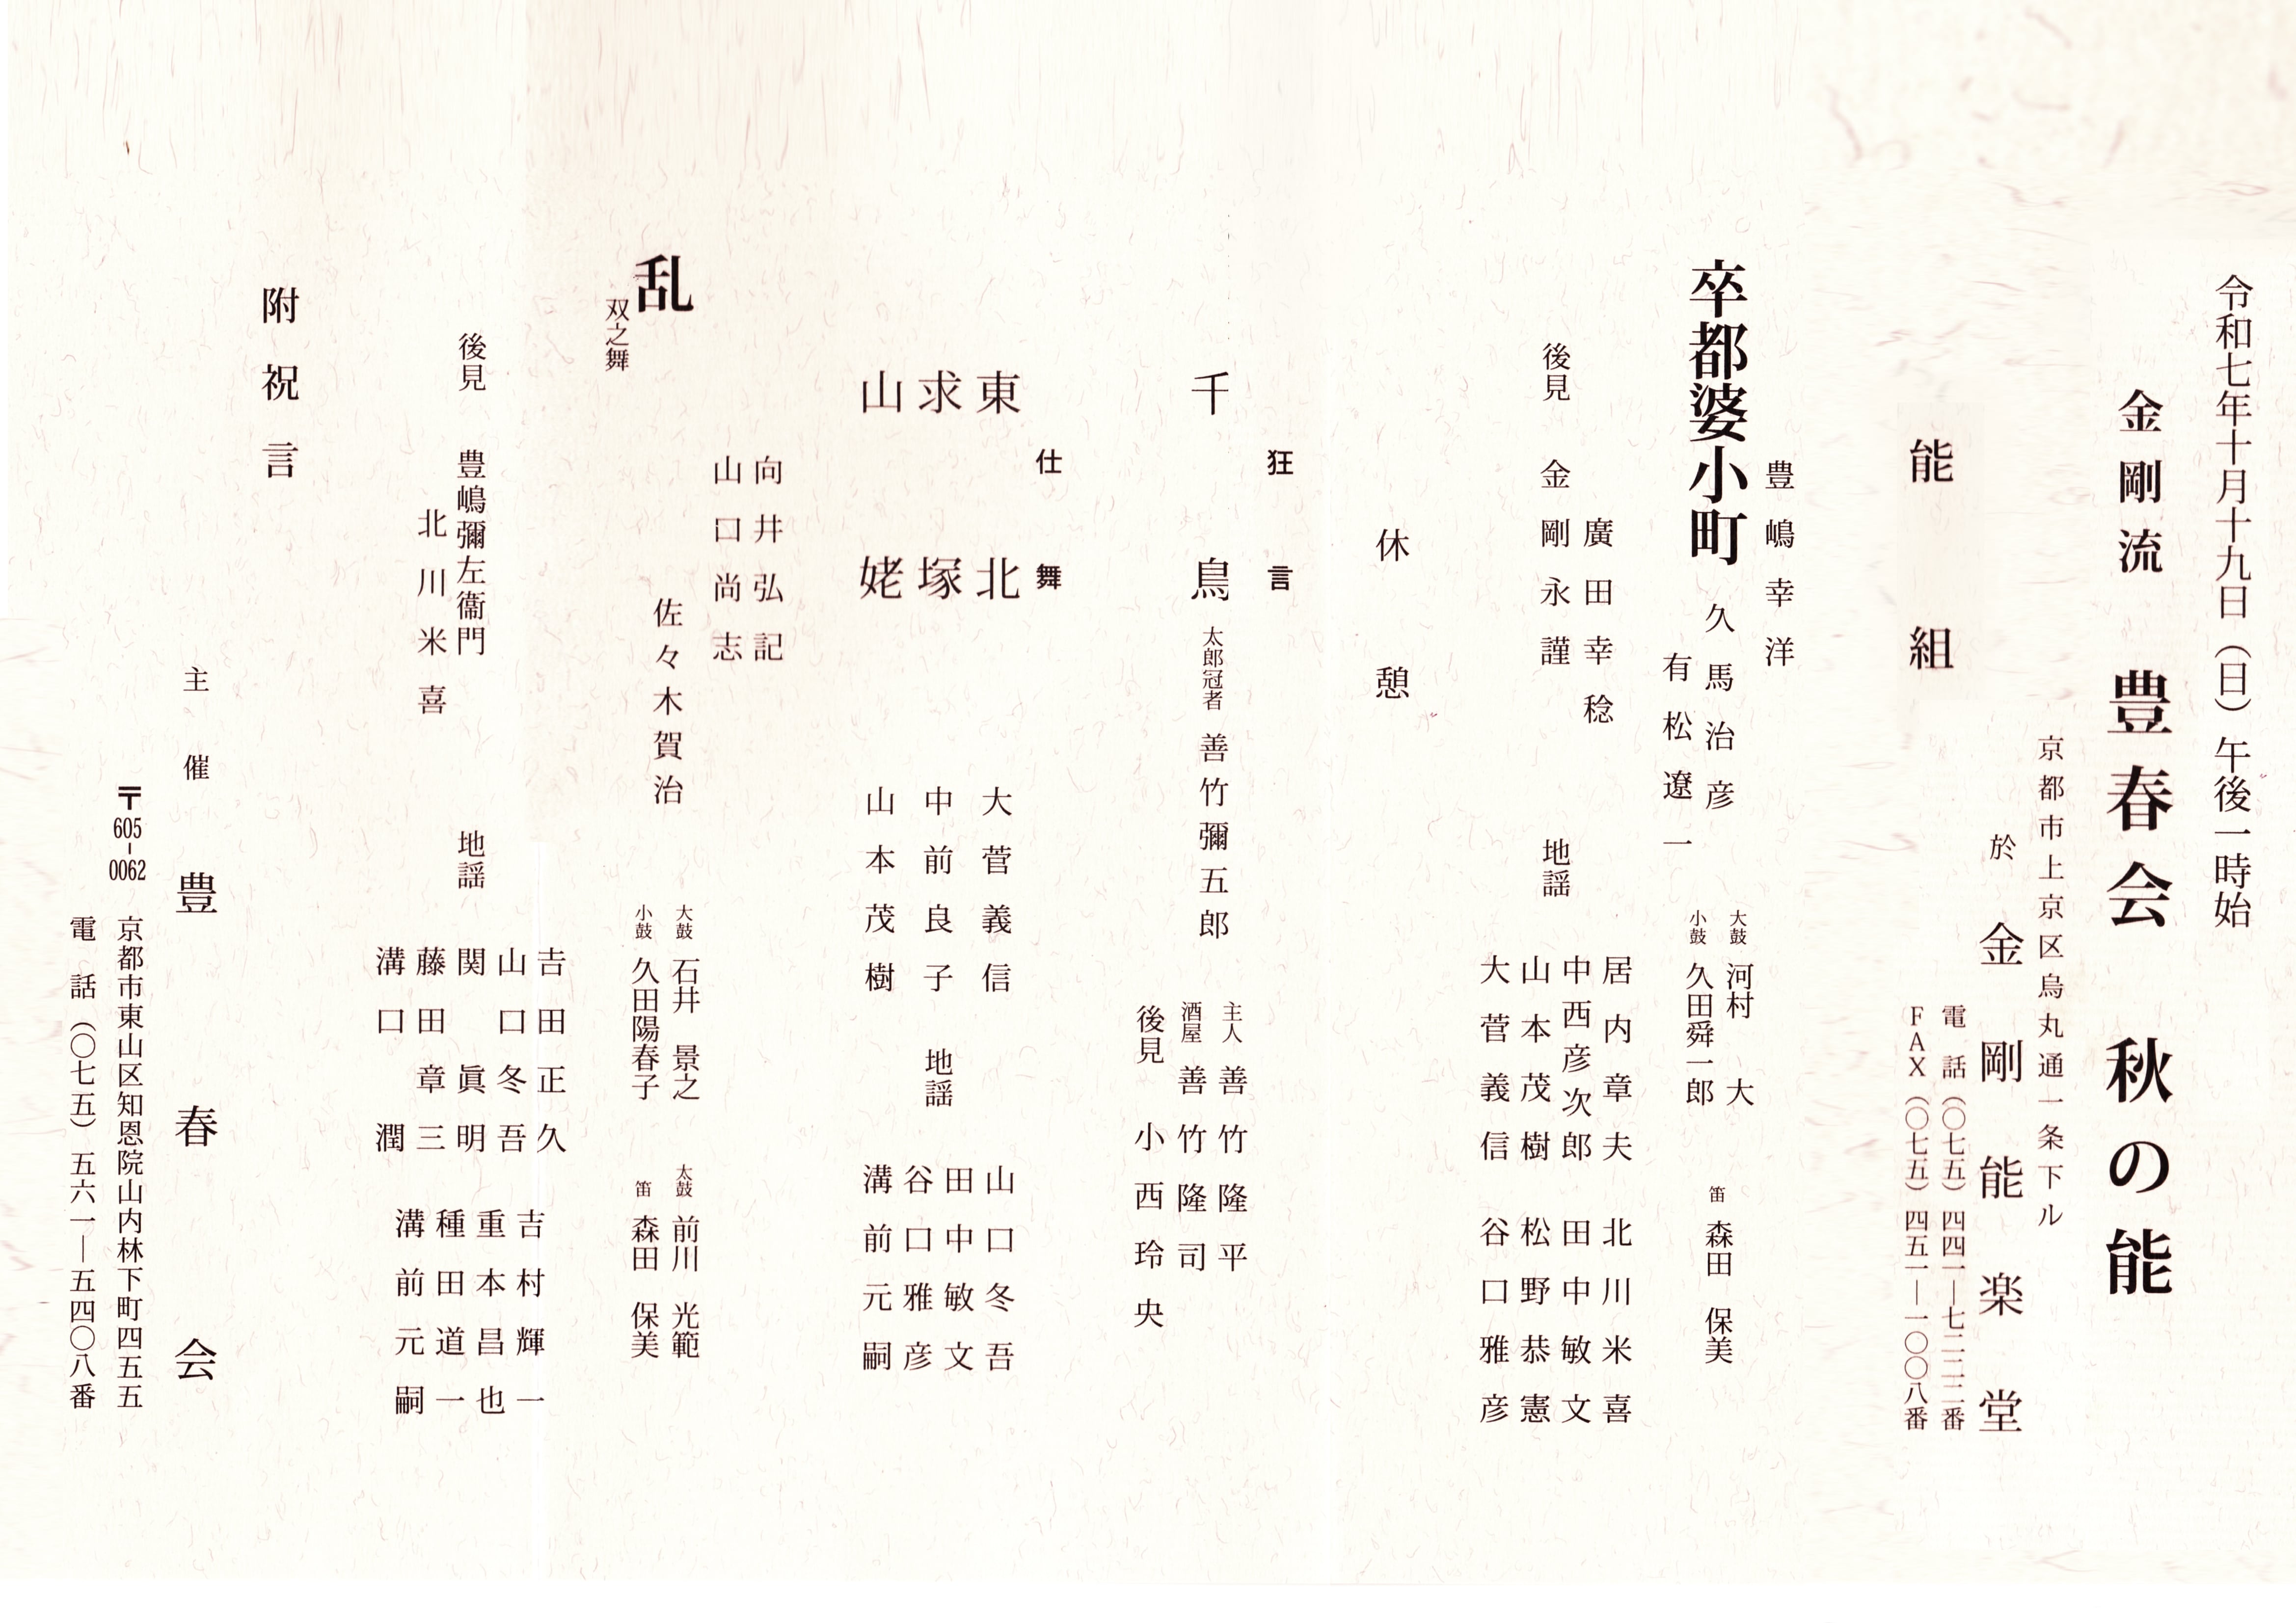 令和七年十月十九日（日）午後一時始
金剛流 豊春会 秋の能
京都市上京区烏丸通一条下ル
於 金剛能楽堂
電話（〇七五）四四一―七二二二番
FAX（〇七五）四五一―一〇〇八番
能組
豊嶋幸洋
卒都婆小町 久馬治彦
有松遼一
大鼓 河村 大
小鼓 久田舜一郎
笛 森田 保美
後見 廣田幸稔
金剛永謹
地謡
居内章夫 北川米喜
中西彦次郎 田中敏文
山本茂樹 松野恭憲
大菅義信 谷口雅彦
休憩
狂言
千鳥 太郎冠者 善竹彌五郎
主人 善竹隆平
酒屋 善竹隆司
後見 小西玲央
仕舞
東北 大菅義信
求塚 中前良子
山姥 山本茂樹
地謡
山口冬吾
田中敏文
谷口雅彦
溝前元嗣
向井弘記
山口尚志
乱 佐々木賀治
双之舞
大鼓 石井 景之
小鼓 久田陽春子
太鼓 前川 光範
笛 森田 保美
後見 豊嶋彌左衞門
北川米喜
地謡
吉田正久 吉村輝一
山口冬吾 重本昌也
関 眞明 種田道一
藤田章三 溝前元嗣
溝口 潤
附祝言
主催 豊春会
〒605-0062 京都市東山区知恩院山内林下町四五五
電話（〇七五）五六一―五四〇八番